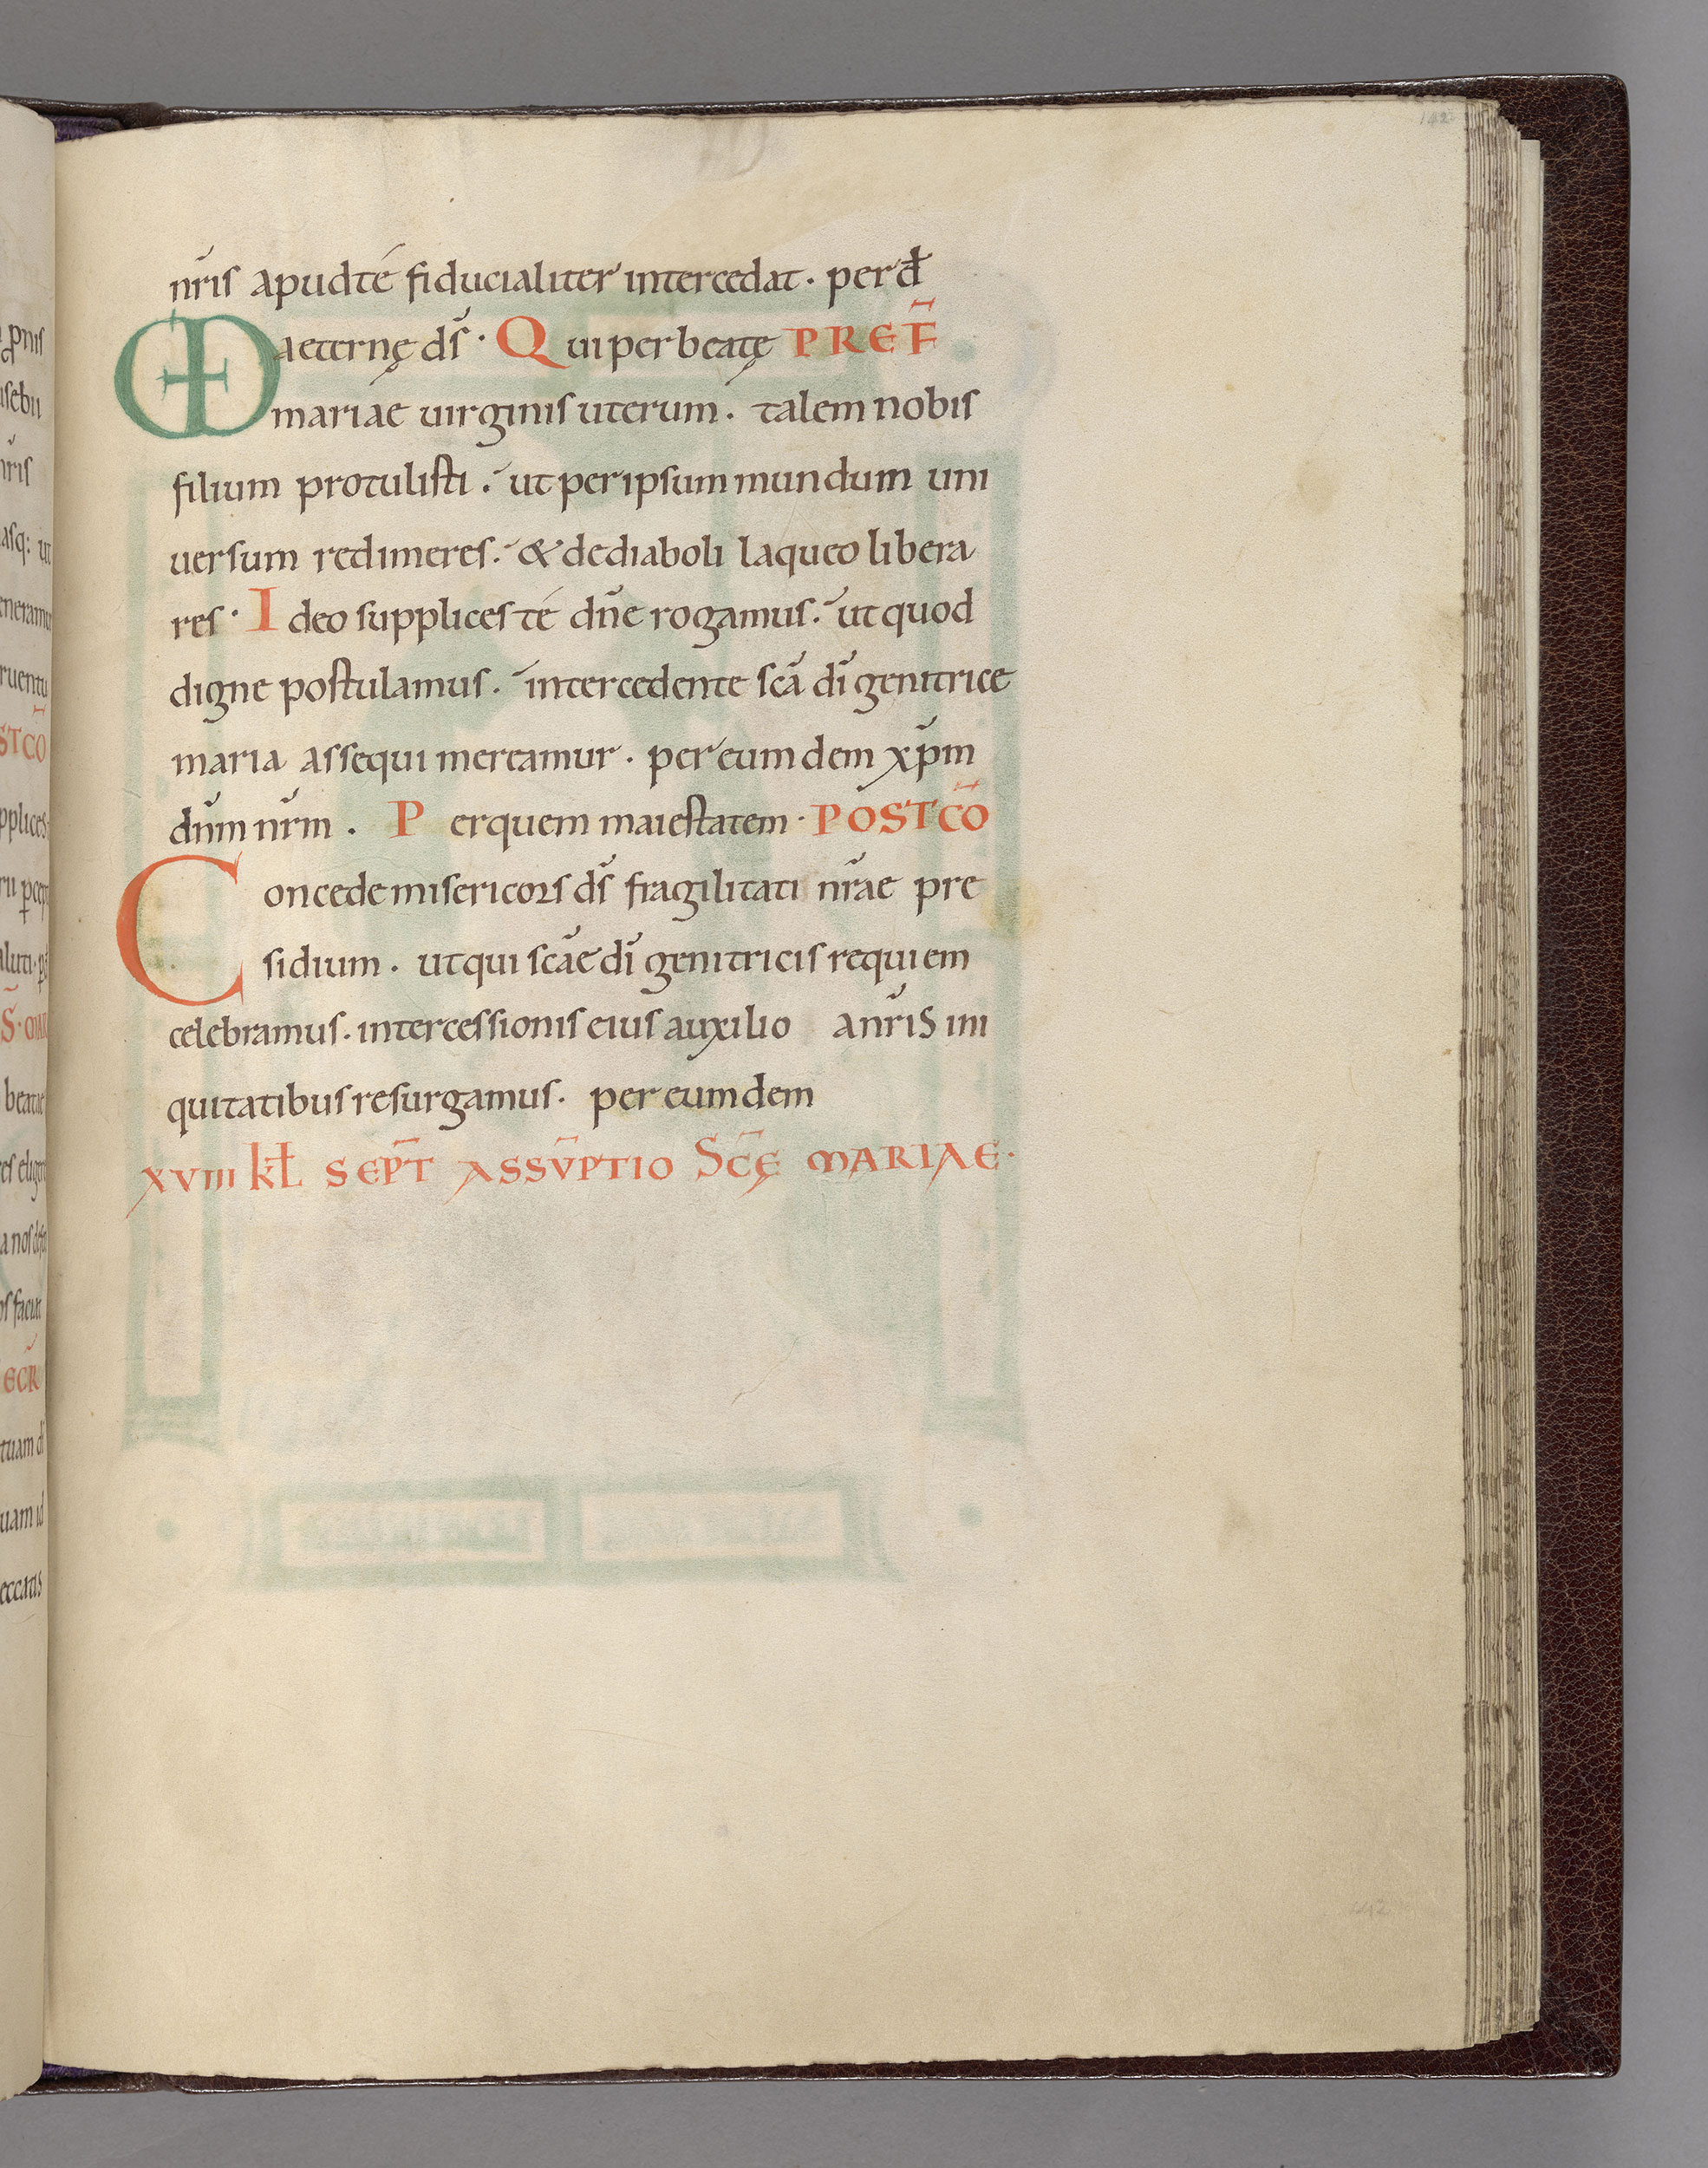 142
nr̄is apud té fiducialiter intercedat · per đ
UD aeternę d̄s · Qui per beatę PREF̄
mariae uirginis uterum · talem nobis
filium protulisti · ut per ipsum mundum uni
uersum redimeres · & de diaboli laqueo libera
res · Ideo supplices té dn̄e rogamus · ut quod
digne postulamus · intercedente sc̄a dī genitrice
maria assequi mereamur · per eumdem xp̄m
dn̄m nr̄m · Per quem maiestatem · POSTCO̅
Concede misericors d̄s fragilitati nr̄ae pre
sidium · ut qui sc̄ae dī genitricis requiem
celebramus · intercessionis eius auxilio a nr̄is ini
quitatibus resurgamus · per eumdem
XVIIII KŁ SEPT̄ ASSV̄PTIO SC̄Ę MARIAE ·